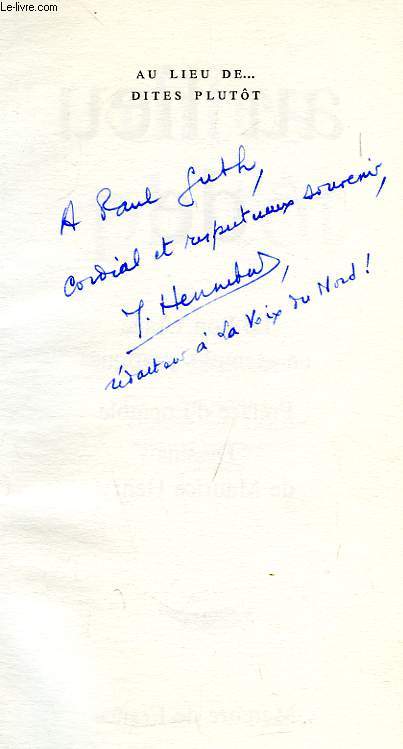 Le-livre.com
AU LIEU DE...
DITES PLUTÔT
A Paul Guth,
Cordial et respectueux souvenir,
J. Hennebert,
rédacteur à La Voix du Nord !